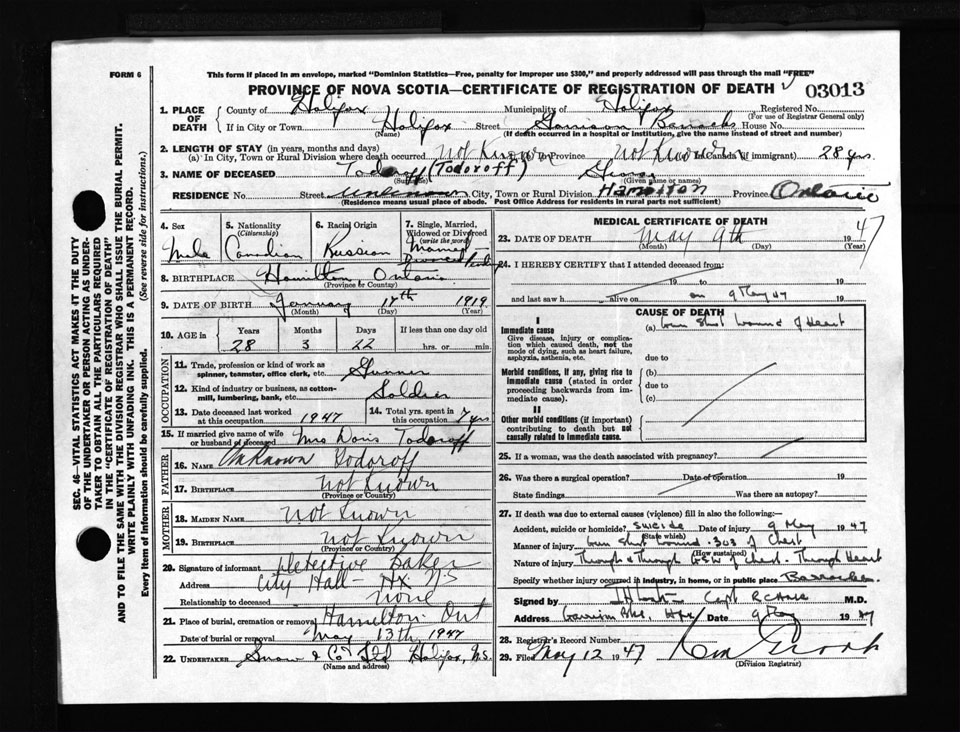 FORM 6
This form if placed in an envelope, marked "Dominion Statistics—Free, penalty for improper use $300," and properly addressed will pass through the mail "FREE"
PROVINCE OF NOVA SCOTIA—CERTIFICATE OF REGISTRATION OF DEATH
03013
1. PLACE OF DEATH
County of Halifax Municipality of Halifax Registered No.
(For use of Registrar General only)
If in City or Town Halifax Street Garrison Barracks House No.
(Name) (If death occurred in a hospital or institution, give the name instead of street and number)
2. LENGTH OF STAY (in years, months and days)
(a) In City, Town or Rural Division where death occurred Not Known In Province Not Known In Canada (if immigrant) 28 yrs.
3. NAME OF DECEASED Todoroff (Todoroff) George
(Surname) (Given name or names)
RESIDENCE No. Street unknown City, Town or Rural Division Hamilton Province Ontario
(Residence means usual place of abode. Post Office Address for residents in rural parts not sufficient)
4. Sex Male
5. Nationality (Citizenship) Canadian
6. Racial Origin Russian
7. Single, Married, Widowed or Divorced (write the word) Married Divorce
8. BIRTHPLACE Hamilton Ontario
(Province or Country)
9. DATE OF BIRTH January 17th 1919
(Month) (Day) (Year)
10. AGE in Years Months Days If less than one day old
28 3 22 hrs. or min.
OCCUPATION
11. Trade, profession or kind of work as spinner, teamster, office clerk, etc. Gunner
12. Kind of industry or business, as cotton-mill, lumbering, bank, etc. Soldier
13. Date deceased last worked at this occupation 1947
14. Total yrs. spent in this occupation 7 yrs
15. If married give name of wife or husband of deceased Mrs Doris Todoroff
FATHER
16. NAME Unknown Todoroff
17. BIRTHPLACE Not Known
(Province or Country)
MOTHER
18. MAIDEN NAME Not Known
19. BIRTHPLACE Not Known
(Province or Country)
20. Signature of informant Detective Baker
Address City Hall - Hx N.S
Relationship to deceased None
21. Place of burial, cremation or removal Hamilton Ont
Date of burial or removal May 13th 1947
22. UNDERTAKER Snow & Co Ltd Halifax, N.S.
(Name and address)
MEDICAL CERTIFICATE OF DEATH
23. DATE OF DEATH May 9th 1947
(Month) (Day)
24. I HEREBY CERTIFY that I attended deceased from:
19 to 19
and last saw h alive on on 9 May 47 19
CAUSE OF DEATH
I
Immediate cause (a) Gun Shot Wound of Heart
Give disease, injury or complication which caused death, not the mode of dying, such as heart failure, asphyxia, asthenia, etc.
due to
Morbid conditions, if any, giving rise to immediate cause (stated in order proceeding backwards from immediate).
(b)
due to
(c)
II
Other morbid conditions (if important) contributing to death but not causally related to immediate cause.
25. If a woman, was the death associated with pregnancy?
26. Was there a surgical operation? Date of operation 19
State findings Was there an autopsy?
27. If death was due to external causes (violence) fill in also the following:
Accident, suicide or homicide? Suicide Date of injury 9 May 1947
(State which)
Manner of injury Gun Shot Wound .303 of Chest
(How sustained)
Nature of injury Through & Through GSW of Chest. Through Heart
Specify whether injury occurred in industry, in home, or in public place Barracks.
Signed by Capt RCAMC M.D.
Address Date 9 May 1947
28. Registrar's Record Number
29. Filed May 12 1947
(Division Registrar)
SEC. 46—VITAL STATISTICS ACT MAKES IT THE DUTY OF THE UNDERTAKER OR PERSON ACTING AS UNDERTAKER TO OBTAIN ALL THE PARTICULARS REQUIRED IN THE "CERTIFICATE OF REGISTRATION OF DEATH"
AND TO FILE THE SAME WITH THE DIVISION REGISTRAR WHO SHALL ISSUE THE BURIAL PERMIT.
WRITE PLAINLY WITH UNFADING INK. THIS IS A PERMANENT RECORD.
Every item of information should be carefully supplied. (See reverse side for instructions.)